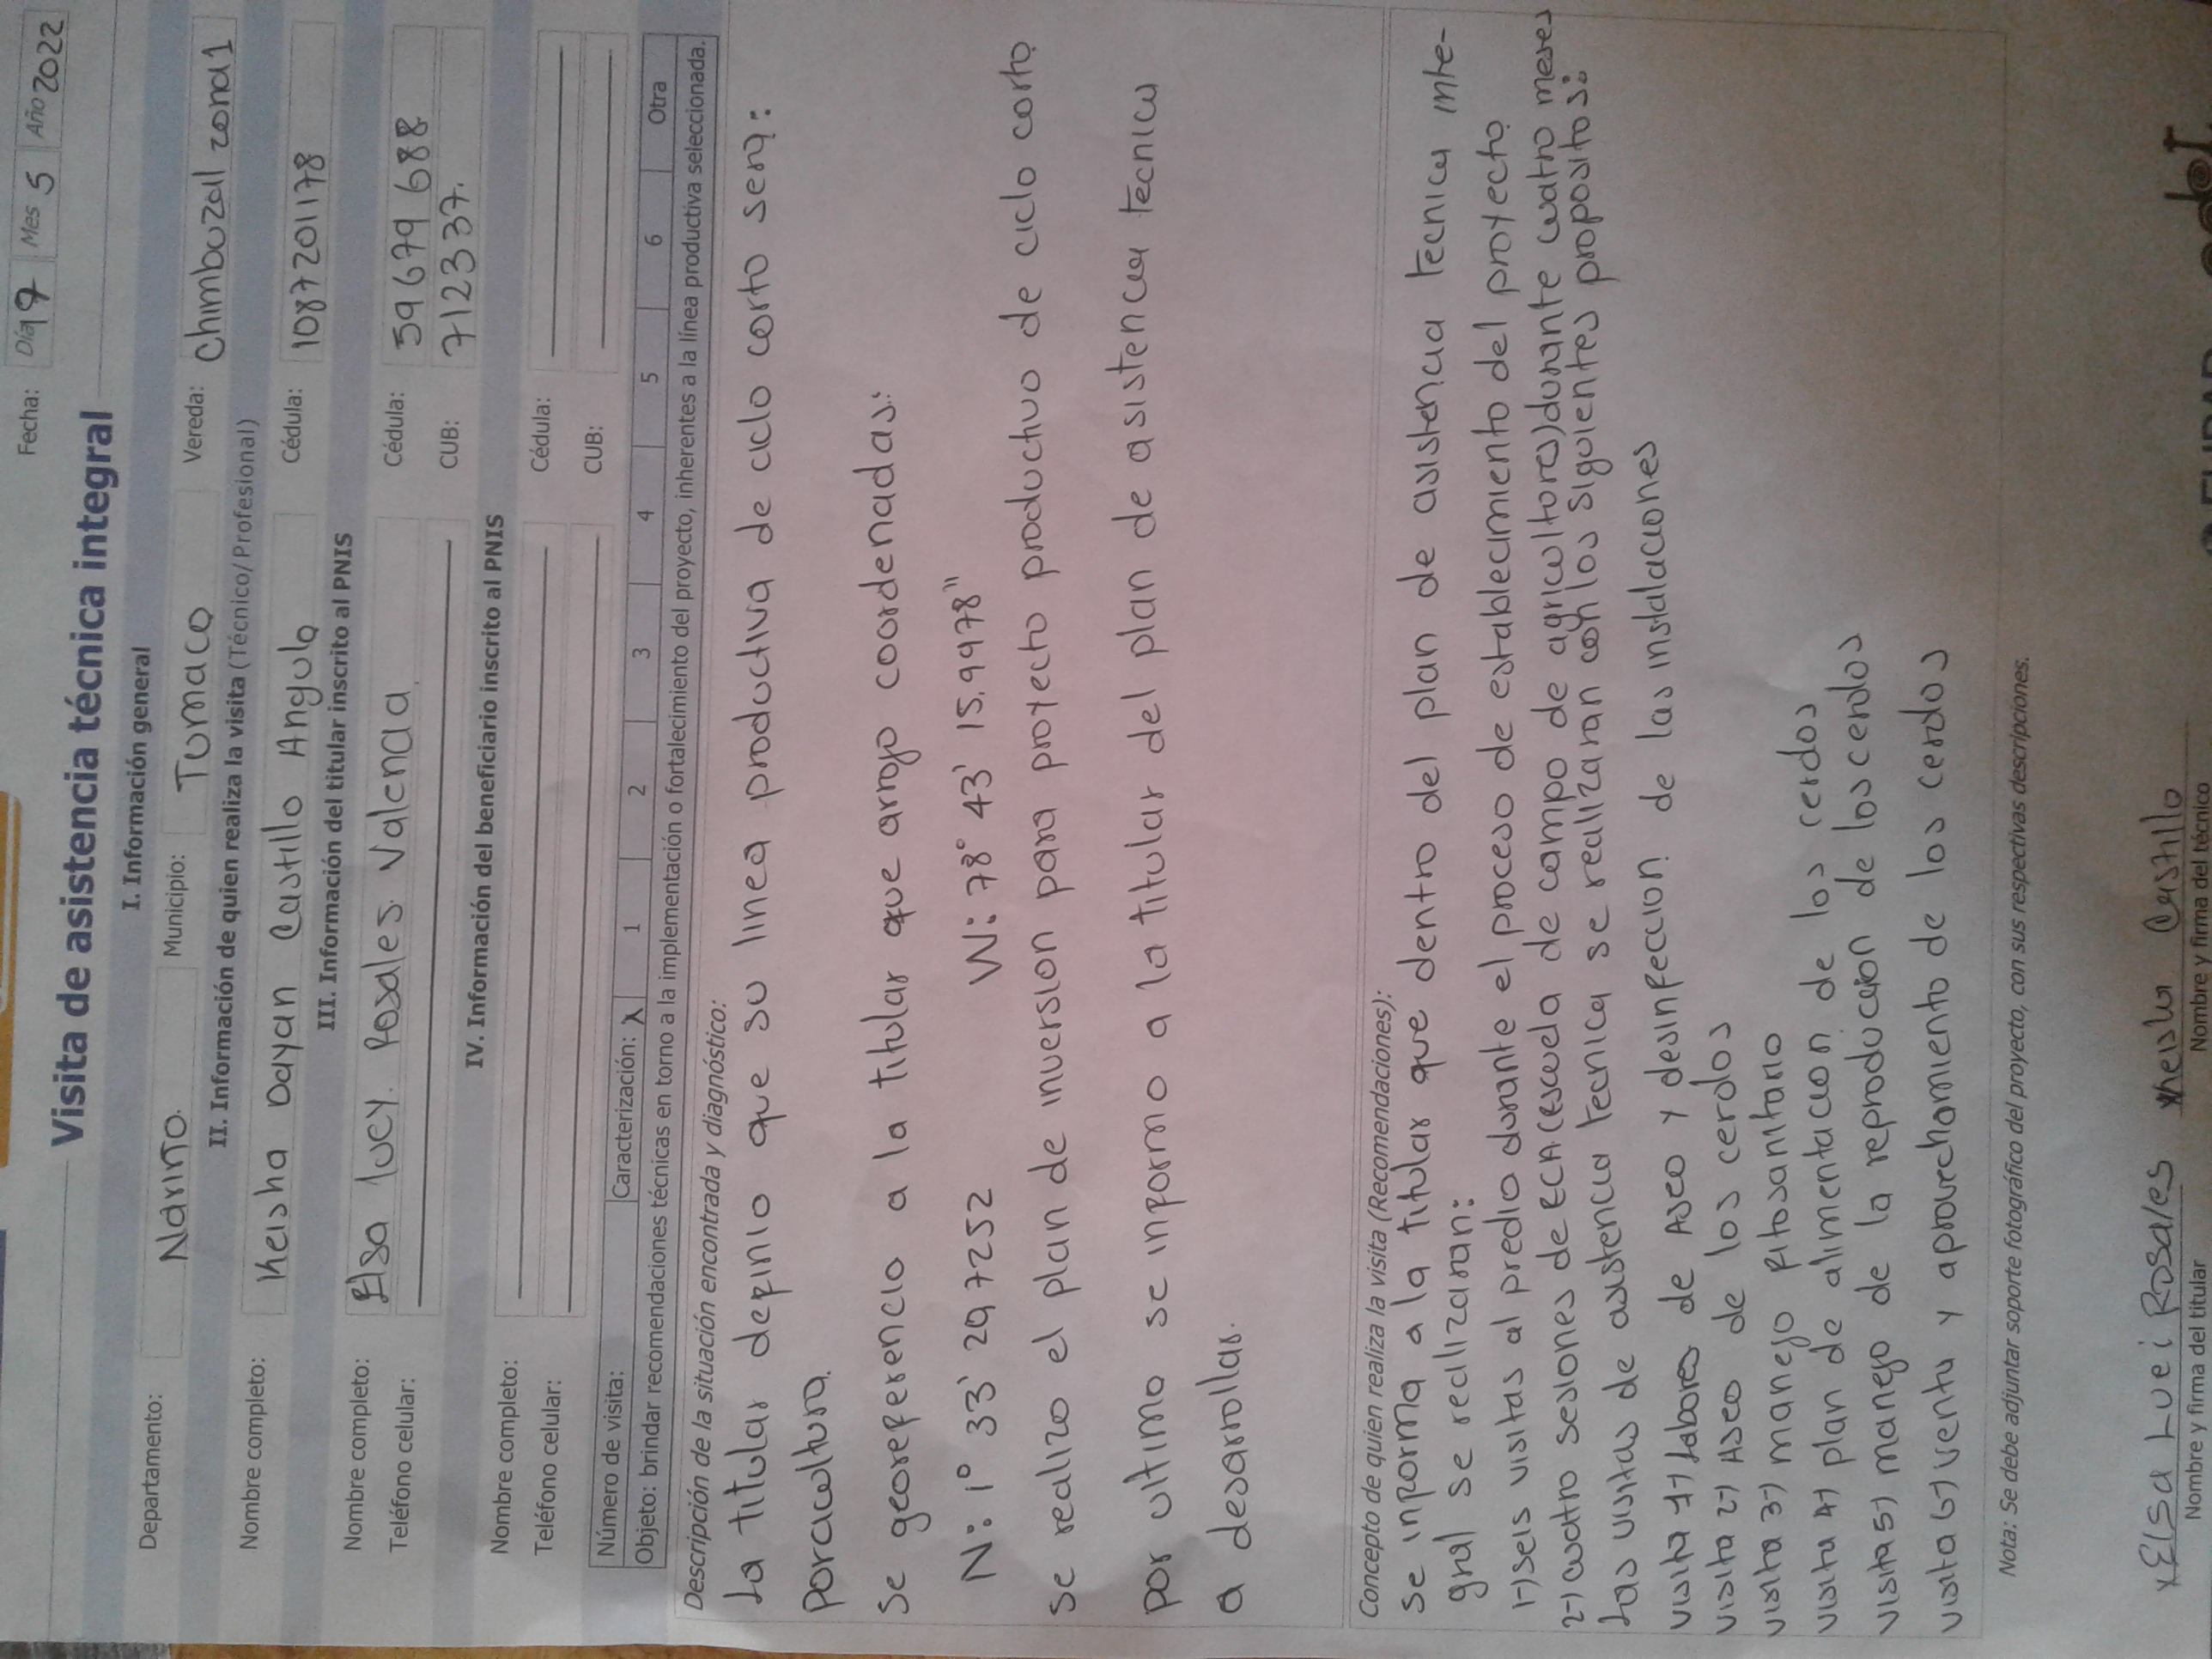 Fecha: Día 19 Mes 5 Año 2022
Visita de asistencia técnica integral
I. Información general
Departamento: Nariño. Municipio: Tumaco Vereda: Chimbuzall zona 1
II. Información de quien realiza la visita (Técnico/ Profesional)
Nombre completo: Keisha Dayan Castillo Angulo Cédula: 1087201178
III. Información del titular inscrito al PNIS
Nombre completo: Elsa lucy. Rosales. Valencia. Cédula: 59 679 688
Teléfono celular: CUB: 712337.
IV. Información del beneficiario inscrito al PNIS
Nombre completo: Cédula:
Teléfono celular: CUB:
Número de visita: Caracterización: X 1 2 3 4 5 6 Otra
Objeto: brindar recomendaciones técnicas en torno a la implementación o fortalecimiento del proyecto, inherentes a la línea productiva seleccionada.
Descripción de la situación encontrada y diagnóstico:
La titular definio que su linea productiva de ciclo corto sera:
Porcicultura.
Se georeferencio a la titular que arrojo coordenadas:
N: 1° 33' 29 7252 W: 78° 43' 15.9978"
Se realizo el plan de inversion para proyecto productivo de ciclo corto.
Por ultimo se informo a la titular del plan de asistencia tecnica
a desarrollar.
Concepto de quien realiza la visita (Recomendaciones):
Se informa a la titular que dentro del plan de asistencia tecnica inte-
gral se realizaran:
1-) seis visitas al predio durante el proceso de establecimiento del proyecto.
2-) cuatro sesiones de ECA (escuela de campo de agricultores) durante cuatro meses
Las visitas de asistencia tecnica se realizaran con los siguientes propositos:
visita 1-) Labores de Aseo y desinfeccion de las instalaciones
visita 2-) Aseo de los cerdos
visita 3-) manejo fitosanitario
visita 4-) plan de alimentacion de los cerdos
visita 5-) manejo de la reproducion de los cerdos
visita 6-) venta y aprovechamiento de los cerdos
Nota: Se debe adjuntar soporte fotográfico del proyecto, con sus respectivas descripciones.
x Elsa Luci Rosales Keisha Castillo
Nombre y firma del titular Nombre y firma del técnico